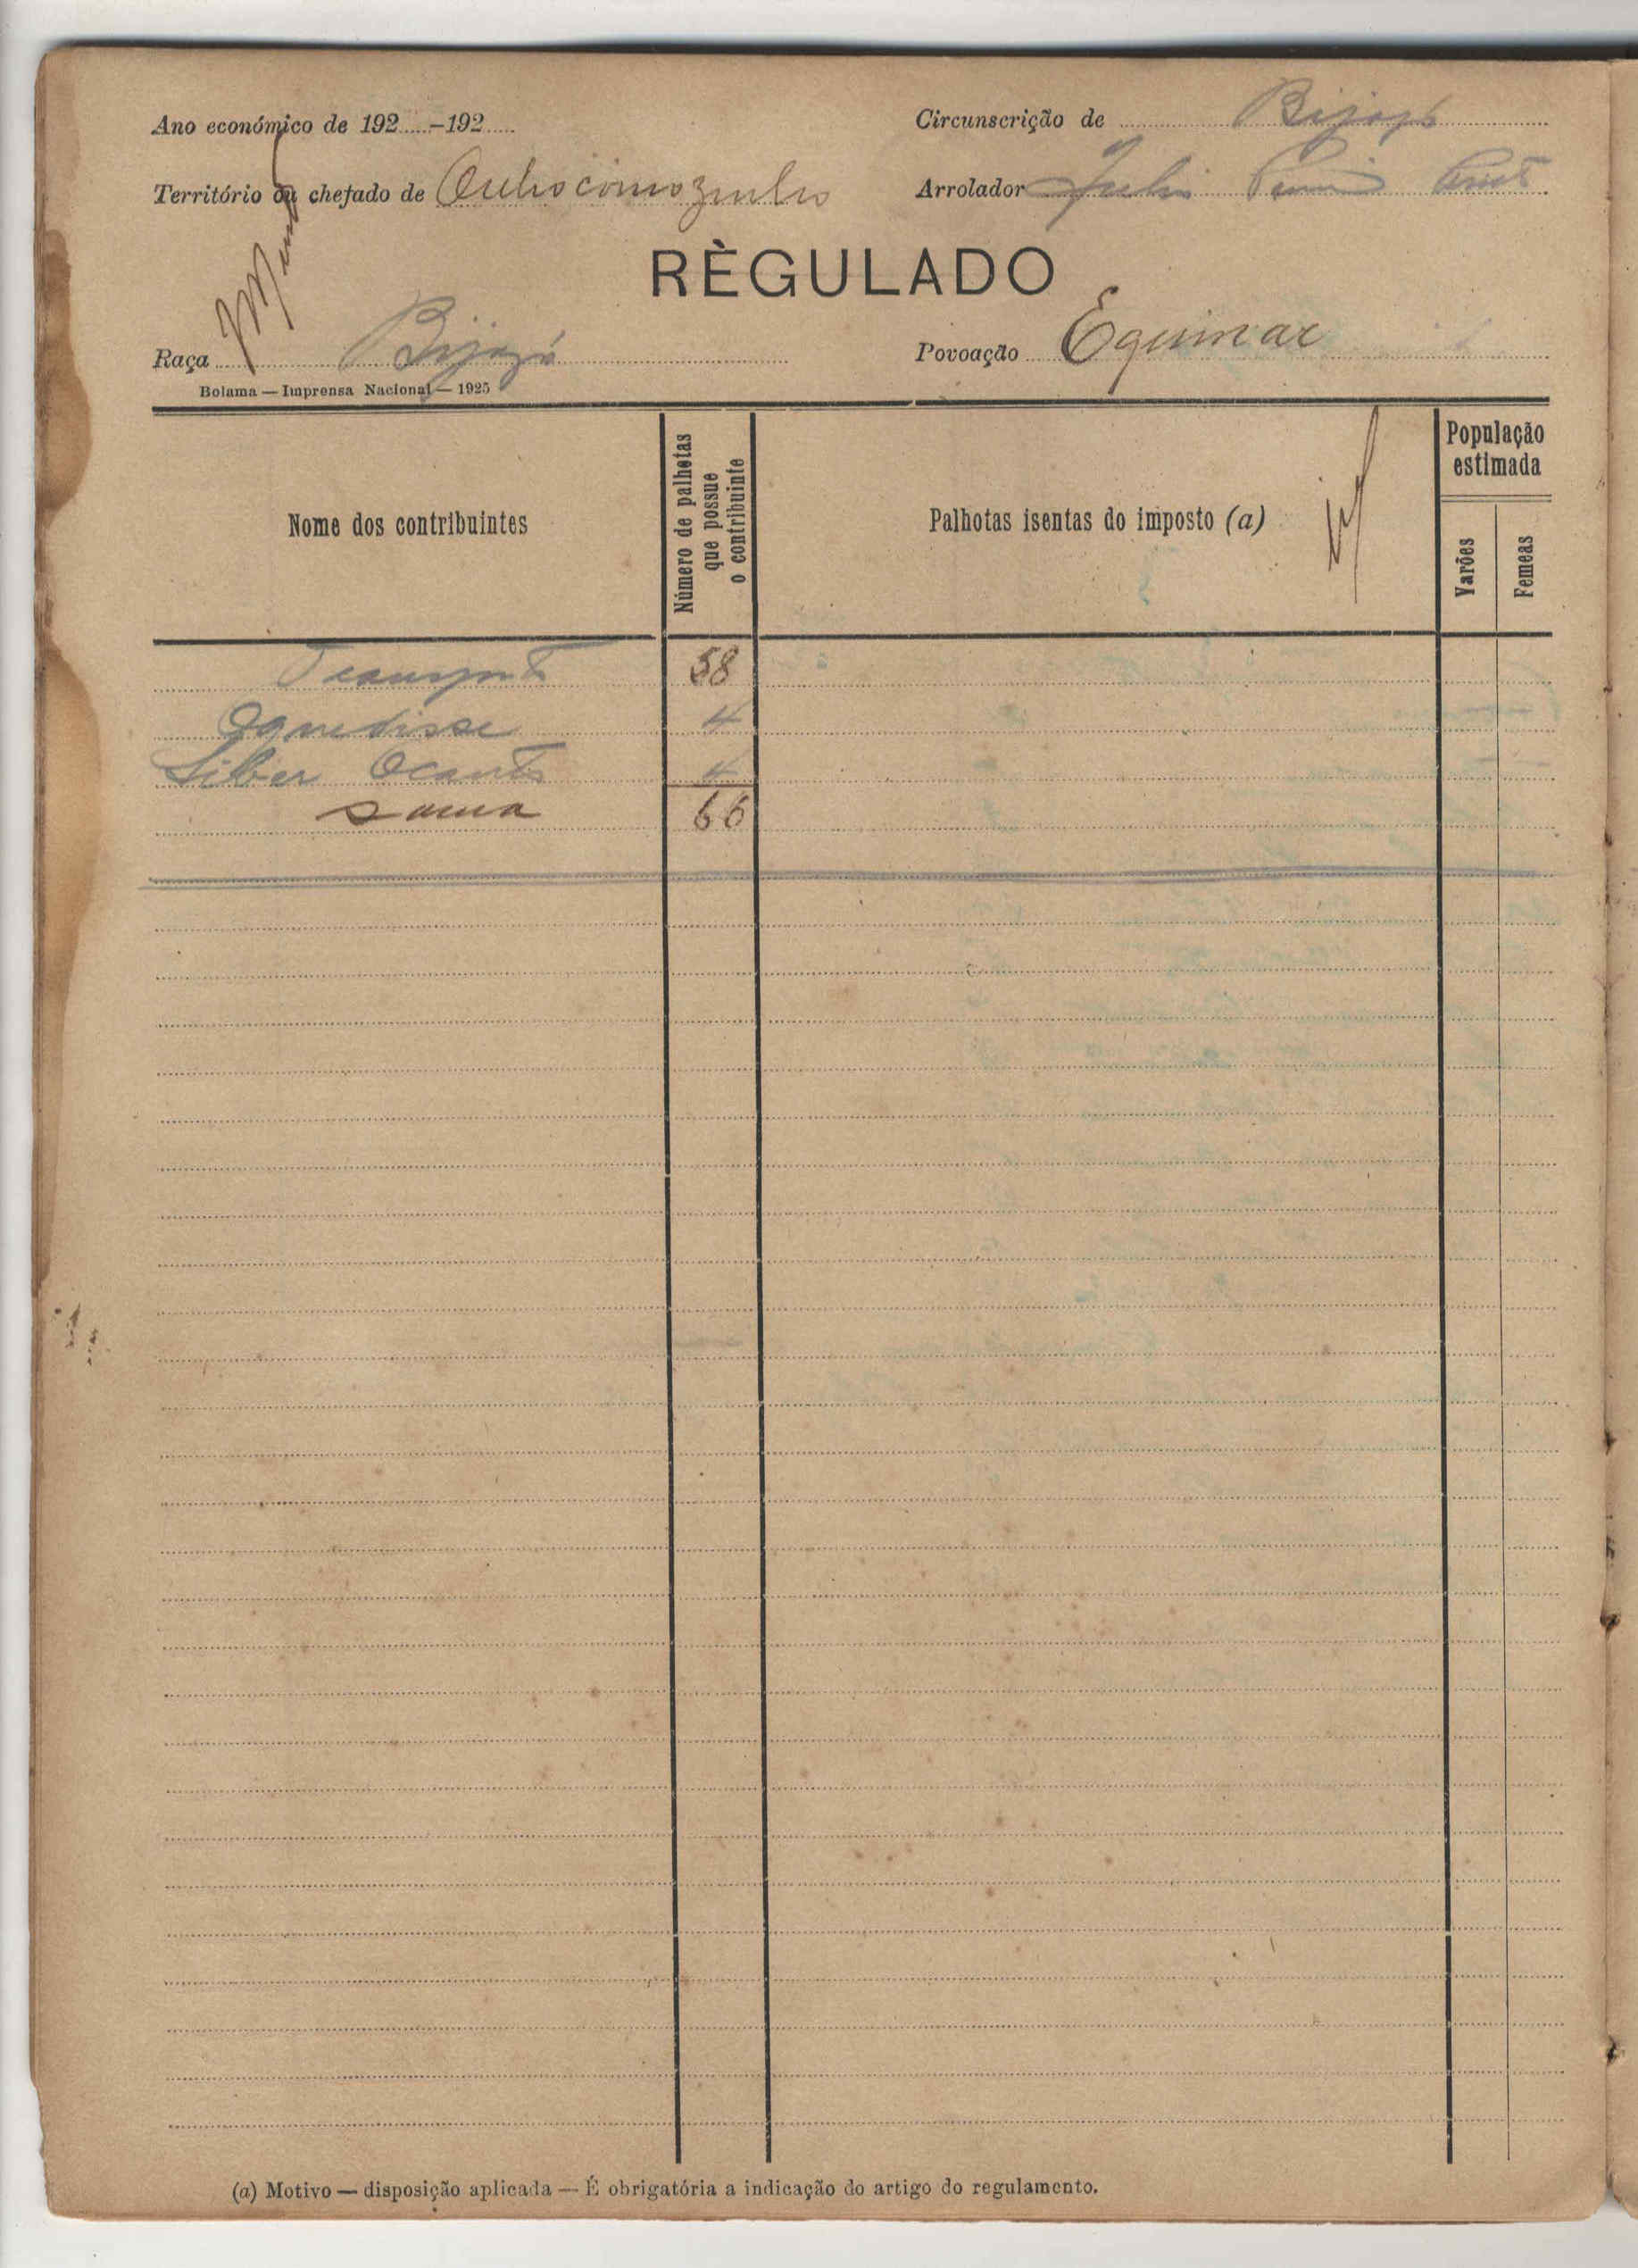 Ano económico de 192.....–192.....
Circunscrição de Bijagós
Território ou chefado de
Arrolador Julio
RÈGULADO
Raça Bijagó
Povoação Eguinar
Bolama — Imprensa Nacional — 1925
Nome dos contribuintes
Número de palhotas que possue o contribuinte
Palhotas isentas do imposto (a)
População estimada
Varões
Femeas
Transporte 58
4
Siber Ocante 4
Soma 66
(a) Motivo — disposição aplicada — É obrigatória a indicação do artigo do regulamento.